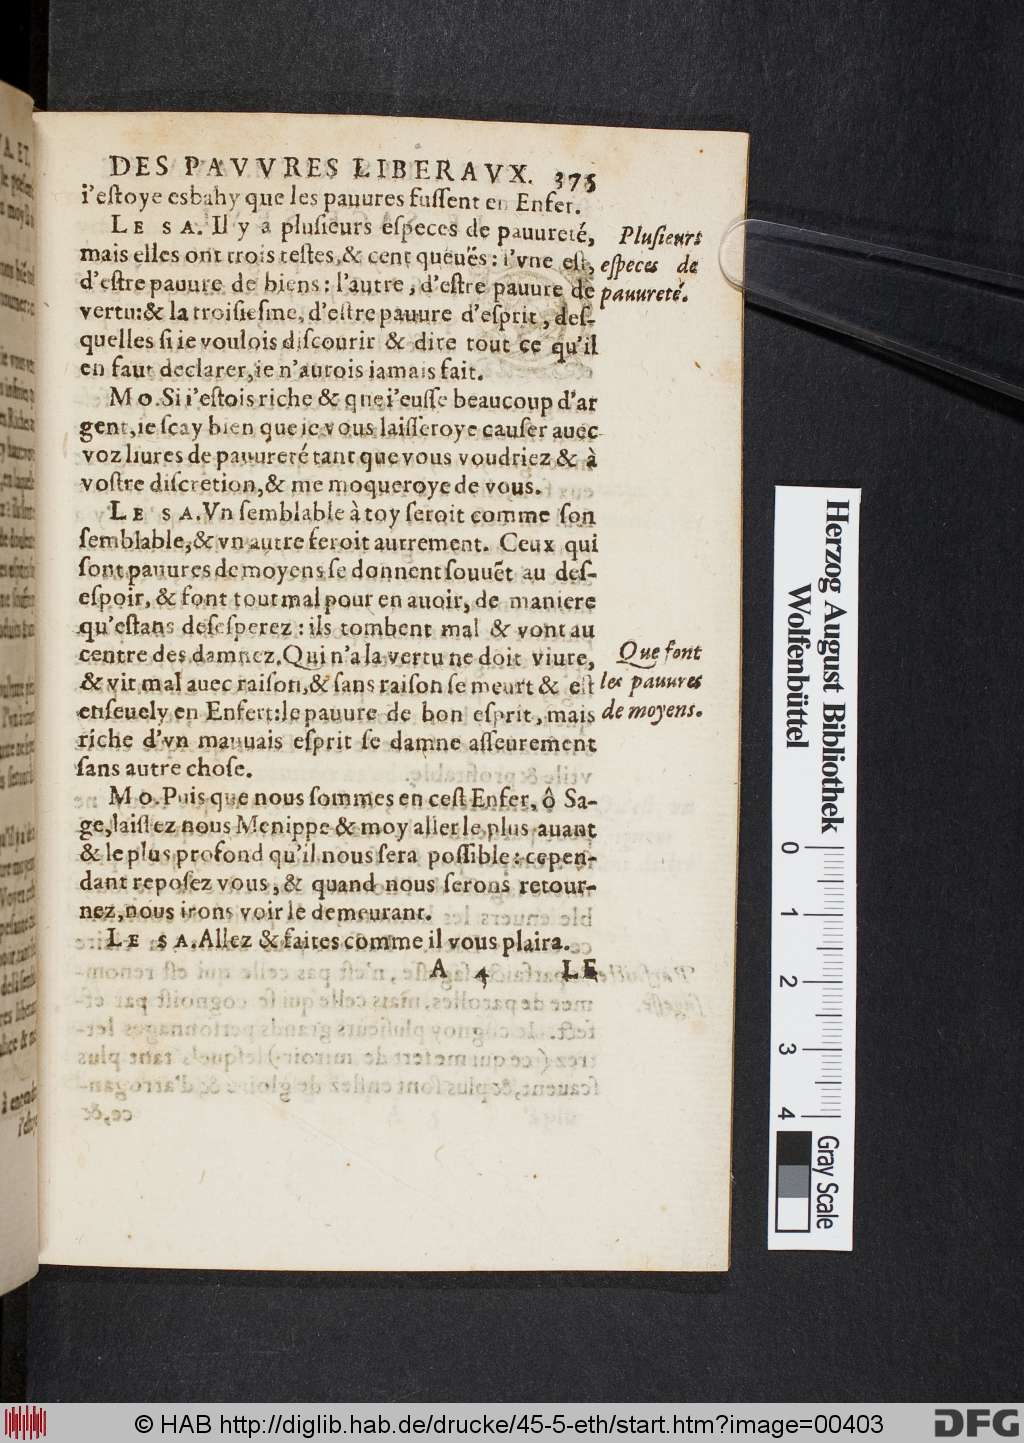 DES PAVVRES LIBERAVX. 375
i'eſtoye esbahy que les pauures fuſſent en Enfer.
LE SA. Il y a pluſieurs eſpeces de pauureté,
mais elles ont trois teſtes, & cent queuës: l'vne eſt,
d'eſtre pauure de biens: l'autre, d'eſtre pauure de
vertu: & la troiſieſme, d'eſtre pauure d'eſprit, deſ-
quelles ſi ie voulois diſcourir & dire tout ce qu'il
en faut declarer, ie n'aurois iamais fait.
Pluſieurs
eſpeces de
pauureté.
MO. Si i'eſtois riche & que i'euſſe beaucoup d'ar
gent, ie ſcay bien que ie vous laiſſeroye cauſer auec
voz liures de pauureté tant que vous voudriez & à
voſtre diſcretion, & me moqueroye de vous.
LE SA. Vn ſemblable à toy feroit comme ſon
ſemblable, & vn autre feroit autrement. Ceux qui
ſont pauures de moyens ſe donnent ſouuẽt au deſ-
eſpoir, & font tout mal pour en auoir, de maniere
qu'eſtans deſeſperez: ils tombent mal & vont au
centre des damnez. Qui n'a la vertu ne doit viure,
& vit mal auec raiſon, & ſans raiſon ſe meurt & eſt
enſeuely en Enfert: le pauure de bon eſprit, mais
riche d'vn mauuais eſprit ſe damne aſſeurement
ſans autre choſe.
Que font
les pauures
de moyens.
MO. Puis que nous ſommes en ceſt Enfer, ô Sa-
ge, laiſſez nous Menippe & moy aller le plus auant
& le plus profond qu'il nous ſera poſſible: cepen-
dant repoſez vous, & quand nous ſerons retour-
nez, nous irons voir le demeurant.
LE SA. Allez & faites comme il vous plaira.
A 4 LE
Herzog August Bibliothek
Wolfenbüttel
0 1 2 3 4
Gray Scale
© HAB http://diglib.hab.de/drucke/45-5-eth/start.htm?image=00403
DFG